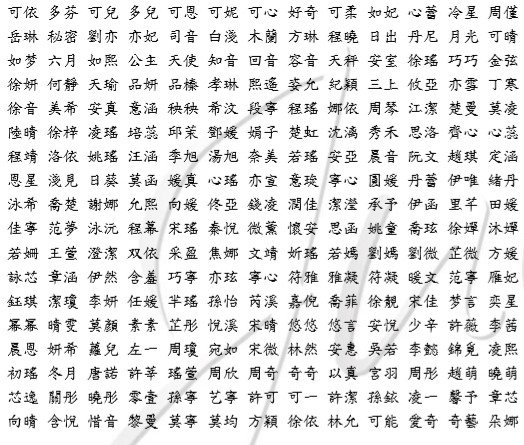 可依 多芬 可兒 多兒 可恩 可妮 可心 好奇 可柔 如妃 心蕾 冷星 周僅
岳琳 秘密 劉亦 亦妃 司音 白淺 木蘭 方琳 程曉 日出 丹尼 月光 可晴
如夢 六月 如熙 公主 天使 知音 回音 容音 天秤 安室 徐瑤 巧巧 金弦
徐妍 何靜 天瑜 品妍 品榛 孝琳 熙遙 姿允 紀穎 三上 攸亞 亦雪 丁寒
徐音 美希 安真 意涵 秧秧 希汶 段寧 程瑤 娜依 周琴 江潔 楚曼 莫凌
陸晴 徐梓 凌瑤 培蕊 邱茉 鄧媛 娟子 楚虹 沈漓 秀禾 思洛 齊心 心蕊
程靖 洛依 姚瑤 汪涵 季旭 湯旭 奈美 若瑤 安亞 晨音 阮文 趙琪 定涵
恩星 淺見 日葵 莫函 媛真 心瑤 亦宣 意琰 寧心 圓媛 丹蕾 伊唯 緒丹
泳希 喬楚 謝娜 允熙 向媛 佟亞 錢凌 潤佳 潔瀅 承予 伊函 里芊 田媛
佳寧 范夢 泳沅 程幕 宋瑤 秦悅 微薰 懷安 思函 姚童 喬玹 徐嬋 沐嬋
若姍 王萱 澄潔 双依 采盈 焦娜 文靖 妡瑤 若媽 劉媽 劉微 芷微 方媛
詠芯 章涵 伊然 含羞 巧寧 亦玹 寧心 符雅 雅凝 符凝 暖文 范寧 雁妃
鈺琪 潔瓊 李妍 任媛 羋瑤 孫怡 芮溪 嘉倪 喬菲 徐靚 宋佳 梦言 奕星
冪冪 晴雯 莫顏 素素 芷彤 悅溪 宋晴 悠悠 悠言 安悅 少辛 許薇 李茜
晨恩 妍希 蘿兒 左一 周瓊 宛如 宋微 林然 安惠 吳若 李懿 錦覓 凌熙
初瑤 冬月 唐諾 許莘 瑤萱 周欣 周奇 奇奇 以真 宮羽 周彤 趙萌 曉萌
芯逸 關彤 曉彤 零壹 孫寧 艺寧 許可 可一 許潔 孫鉉 凌一 馨予 章芯
向晴 含悅 惜音 黎曼 莫寧 莫均 方穎 徐依 林允 可能 愛奇 奇藝 朵娜